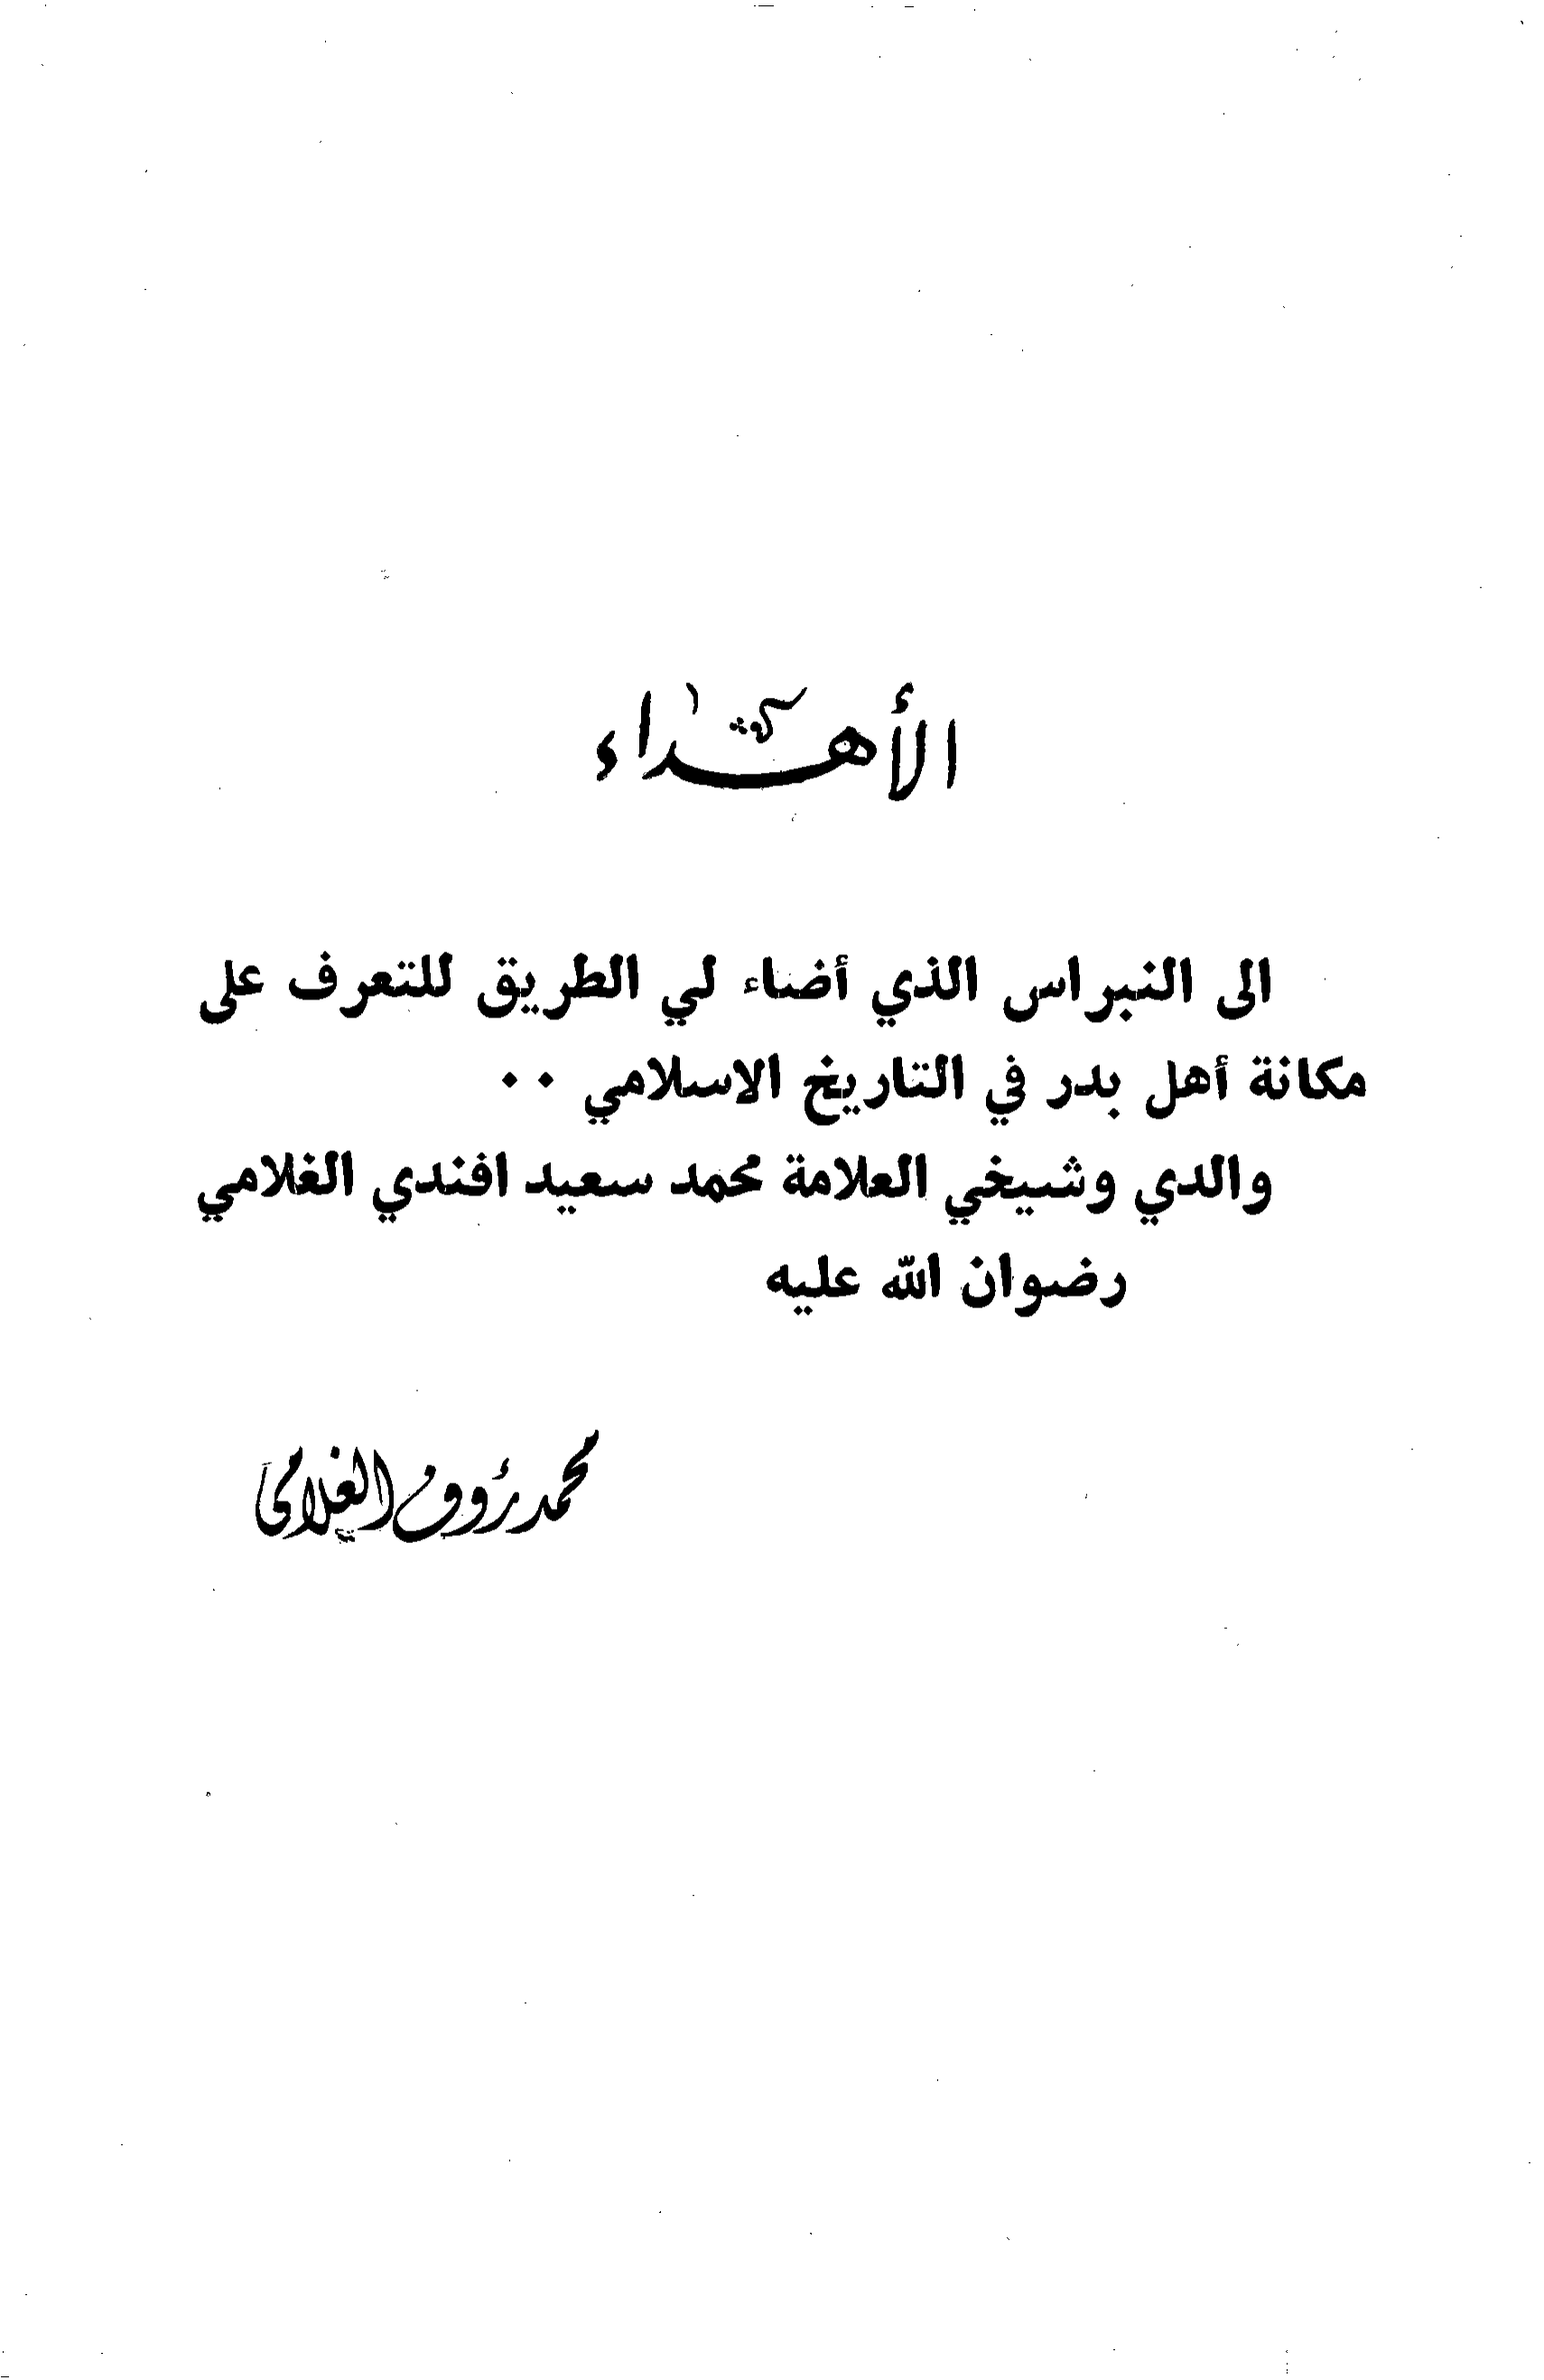 الأهداء
الى النبراس الذي أضاء لي الطريق للتعرف على
مكانة أهل بدر في التاريخ الاسلامي ٠٠
والدي وشيخي العلامة محمد سعيد افندي الغلامي
رضوان الله عليه
محمد رؤوف الغلامي